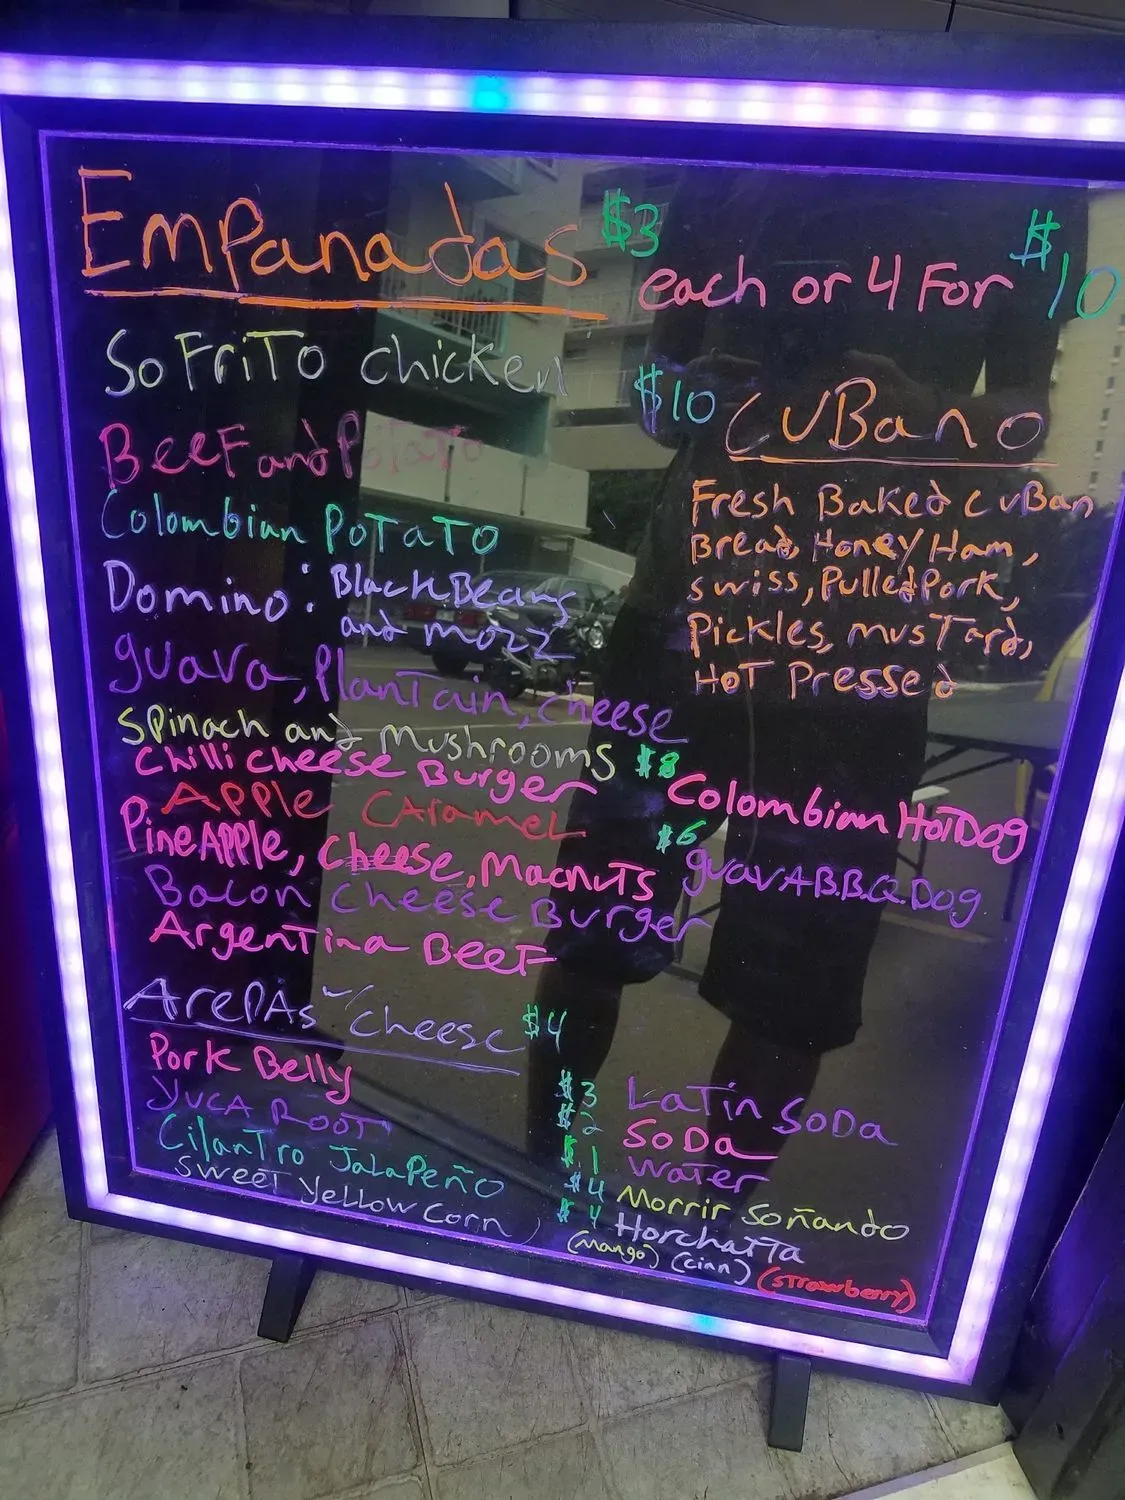 Empanadas $3 each or 4 For $10
SoFriTo chicken
BeeF and Potato
Colombian PoTaTo
Domino: Black Beans
and mozz
guava, PlanTain, cheese
Spinach and Mushrooms
Chilli cheese Burger
APPle CArameL
PineAPPle, cheese, MacnuTs
Bacon Cheese Burger
ArgenTina BeeF
$10 CuBano
Fresh Baked CuBan
Bread, Honey Ham,
swiss, Pulled Pork,
Pickles, musTard,
HoT Pressed
$8 Colombian HoTDog
$6 guavA B.B.Q. Dog
ArePAs w/cheese $4
Pork Belly
YucA RooT
CilanTro JaLaPeño
sweeT yeLLow Corn
$3 LaTin SoDa
$2 SoDa
$1 waTer
$4 Morrir Soñando
$4 HorchaTTa
(mango) (cinn) (strawberry)